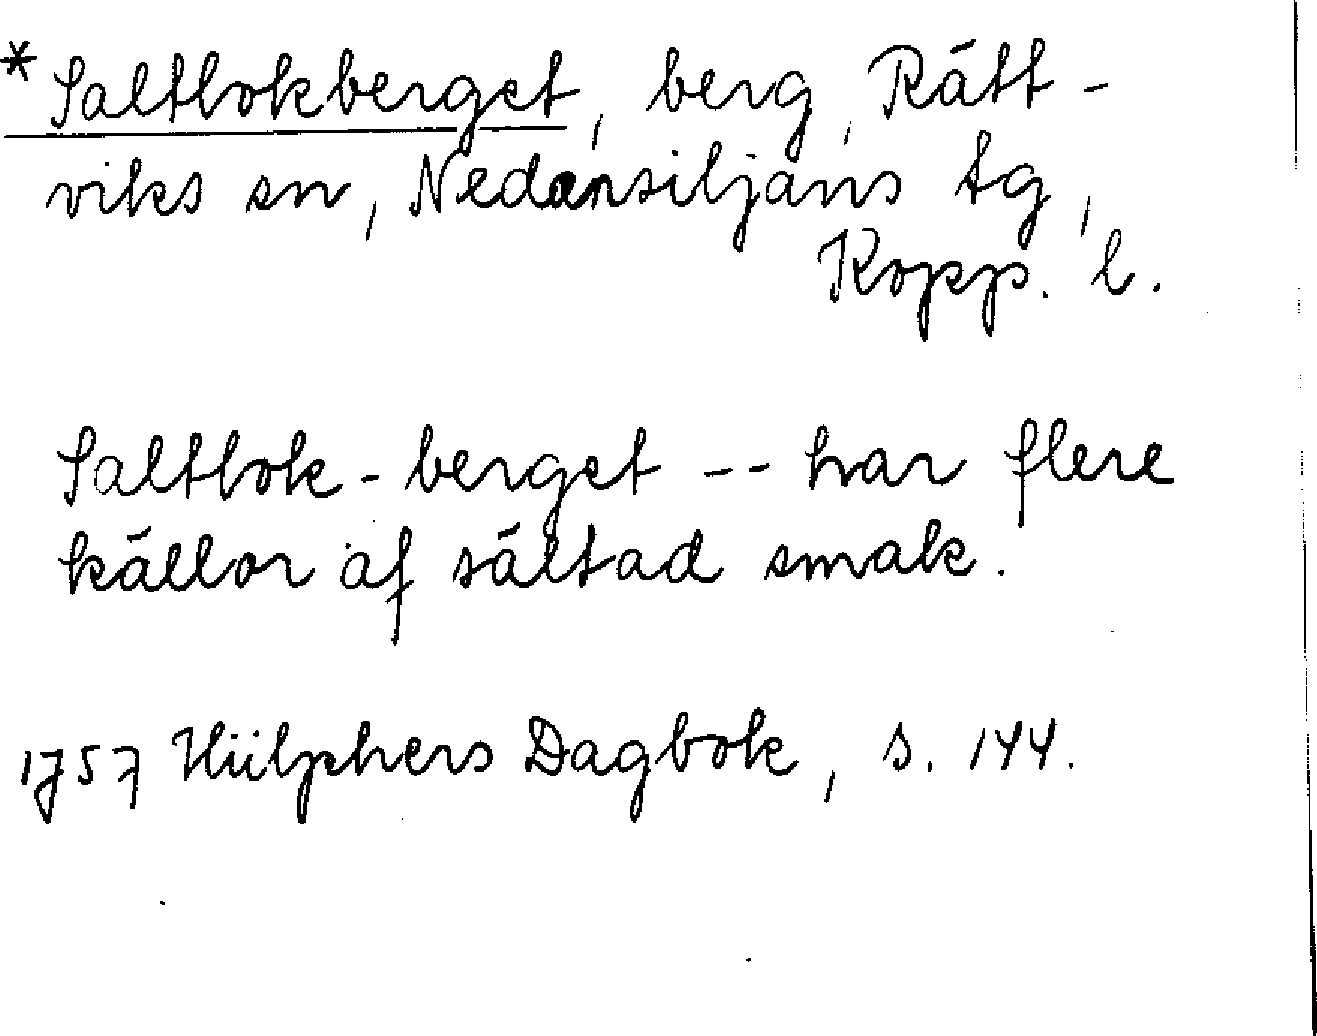 *Saltbokberget, berg, Rätt-
viks sn, Nedansiljans tg,
Kopp. l.
Saltbok-berget -- har flere
källor af sältad smak.
1757 Hülphers Dagbok, s. 144.